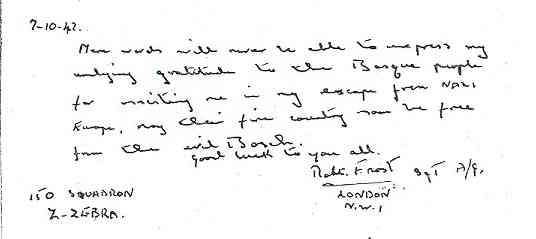 7-10-42.
Mere words will never be able to express my
undying gratitude to the Basque people
for assisting me in my escape from NAZI
Europe, may their fine country soon be free
from the evil Bosch.
good luck to you all.
Robt. Frost Sgt A/G.
LONDON
N.W.1
150 SQUADRON
Z-ZEBRA.